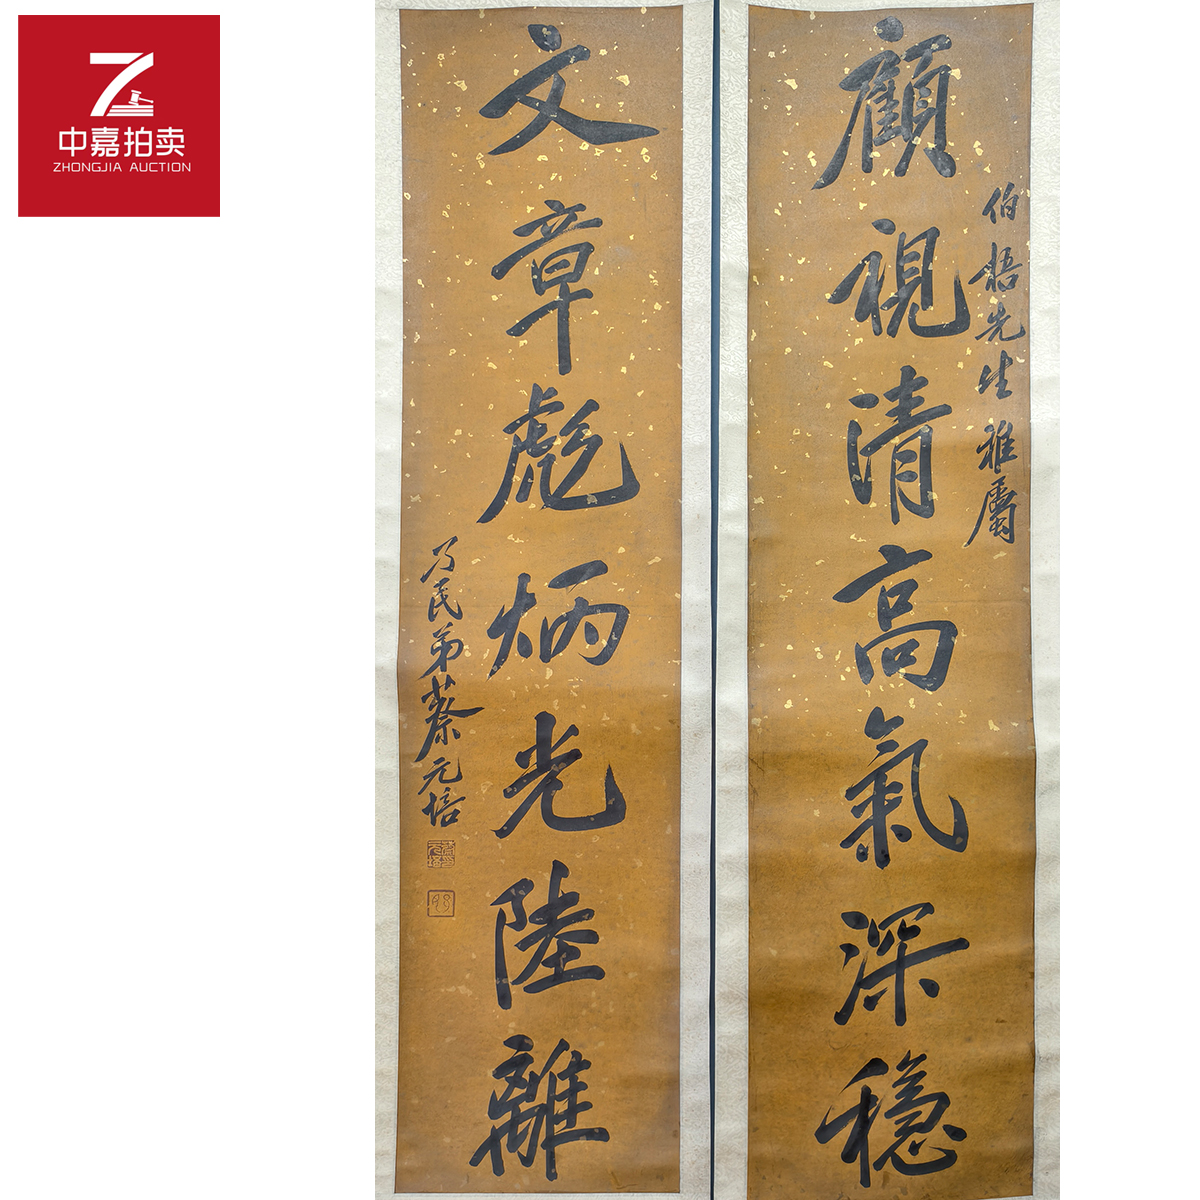 中嘉拍卖
ZHONGJIA AUCTION
顧視清高氣深穩
伯梧先生雅屬
文章彪炳光陸離
乃民弟蔡元培